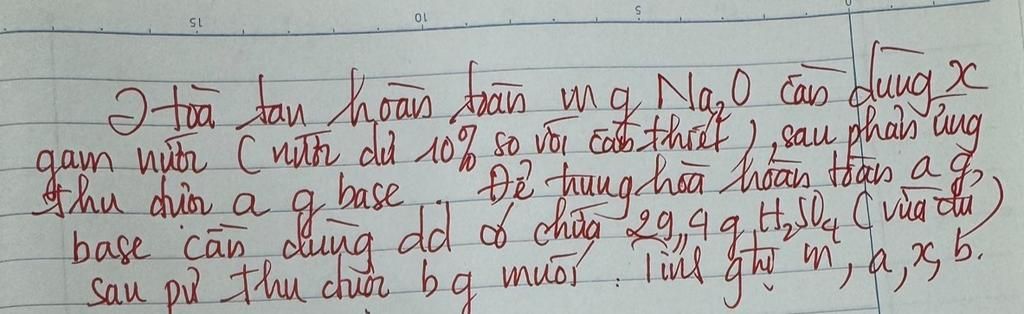 15 10 5 0
2) Hoà tan hoàn toàn m g Na₂O cần dùng x
gam nước (nước dư 10% so với cần thiết), sau phản ứng
thu được a g base. Để trung hoà hoàn toàn a g
base cần dùng dd có chứa 29,4 g H₂SO₄ (vừa đủ)
sau pứ thu được b g muối. Tính gtrị m, a, x, b.